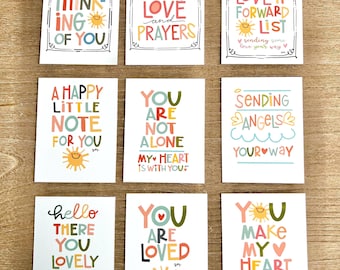 THINK
ING
OF YOU
LOVE
and
PRAYERS
LOVE IT
FORWARD
LIST
sending some
love your way
A HAPPY
LITTLE
NOTE
FOR YOU
YOU
ARE
NOT
ALONE
MY HEART
IS WITH YOU
SENDING
ANGELS
YOUR WAY
hello
THERE
YOU
LOVELY
YOU
ARE
LOVED
YOU
MAKE
MY
HEART